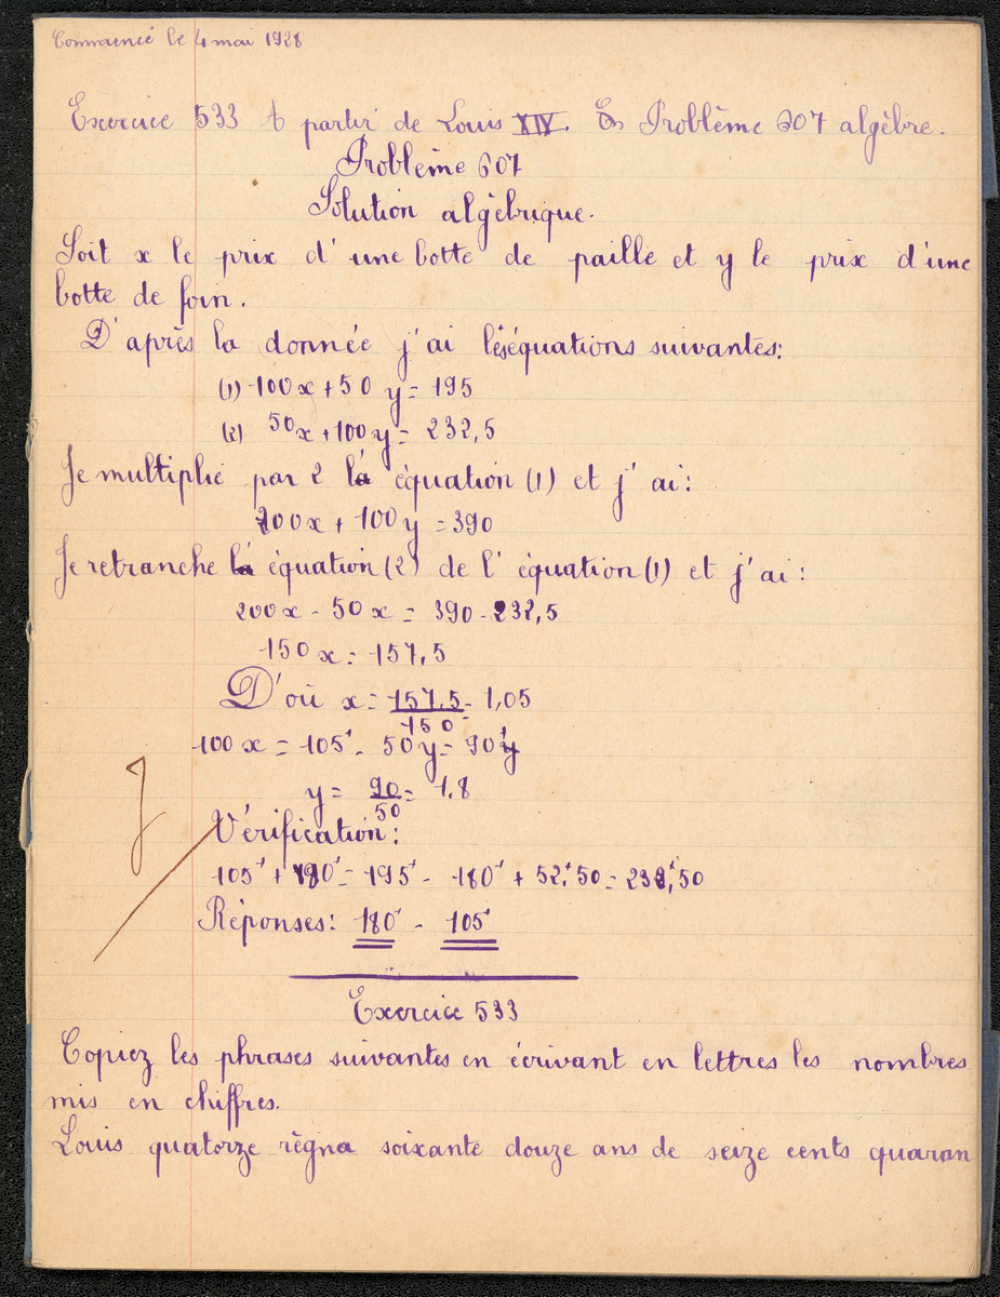 Commencé le 4 mai 1928
Exercice 533 A partir de Louis XIV. Problème 607 algèbre.
Problème 607
Solution algébrique.
Soit x le prix d'une botte de paille et y le prix d'une
botte de foin.
D'après la donnée j'ai les équations suivantes:
(1) 100x + 50 y = 195
(2) 50x + 100 y = 232,5
Je multiplie par 2 l'équation (1) et j'ai:
200x + 100y = 390
Je retranche l'équation (2) de l'équation (1) et j'ai:
200x - 50x = 390 - 232,5
150x = 157,5
D'où x = 157,5 / 150 = 1,05
100x = 105f - 50y = 90f
y = 90 / 50 = 1,8
Vérification:
105f + 90f = 195f - 180f + 52f,50 = 232f,50
Réponses: 180f - 105f
Exercice 533
Copiez les phrases suivantes en écrivant en lettres les nombres
mis en chiffres.
Louis quatorze règna soixante douze ans de seize cents quaran